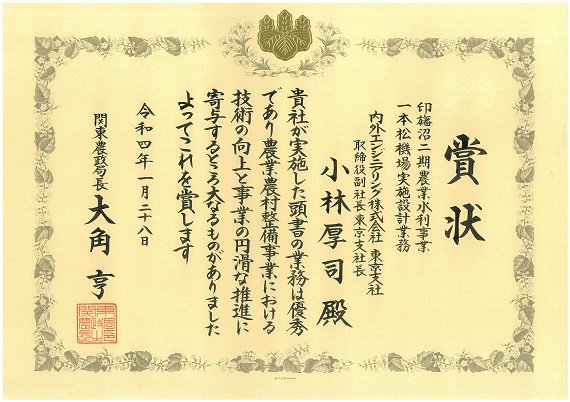 賞状
印旛沼二期農業水利事業
一本松機場実施設計業務
内外エンジニアリング株式会社 東京支社
取締役副社長東京支社長
小林厚司 殿
貴社が実施した頭書の業務は優秀
であり農業農村整備事業における
技術の向上と事業の円滑な推進に
寄与するところ大なるものがありました
よってこれを賞します
令和四年一月二十八日
関東農政局長 大角 亨